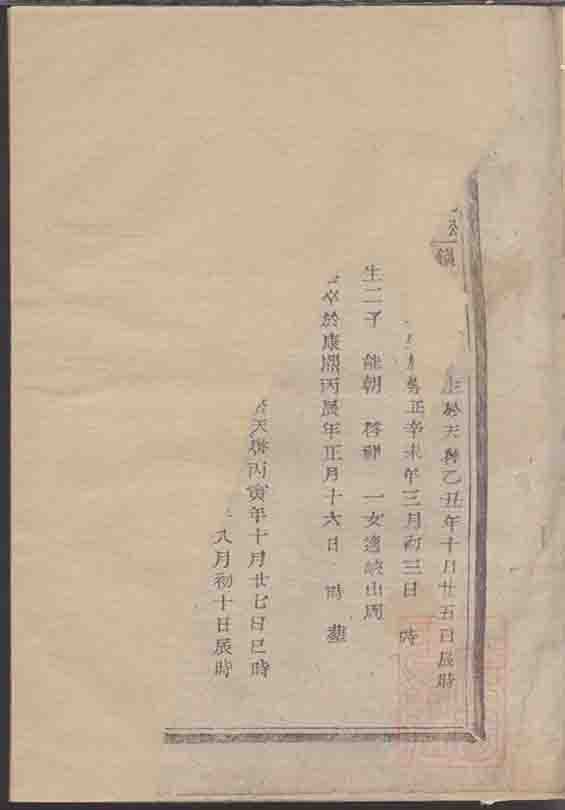 公
生於天啓乙丑年十月廿五日辰時
正辛未年三月初三日　時
生二子　能朝　啓　一女適岐山周
卒於康熙丙辰年正月十六日　時　葬
天啓丙寅年十月廿七日巳時
八月初十日辰時